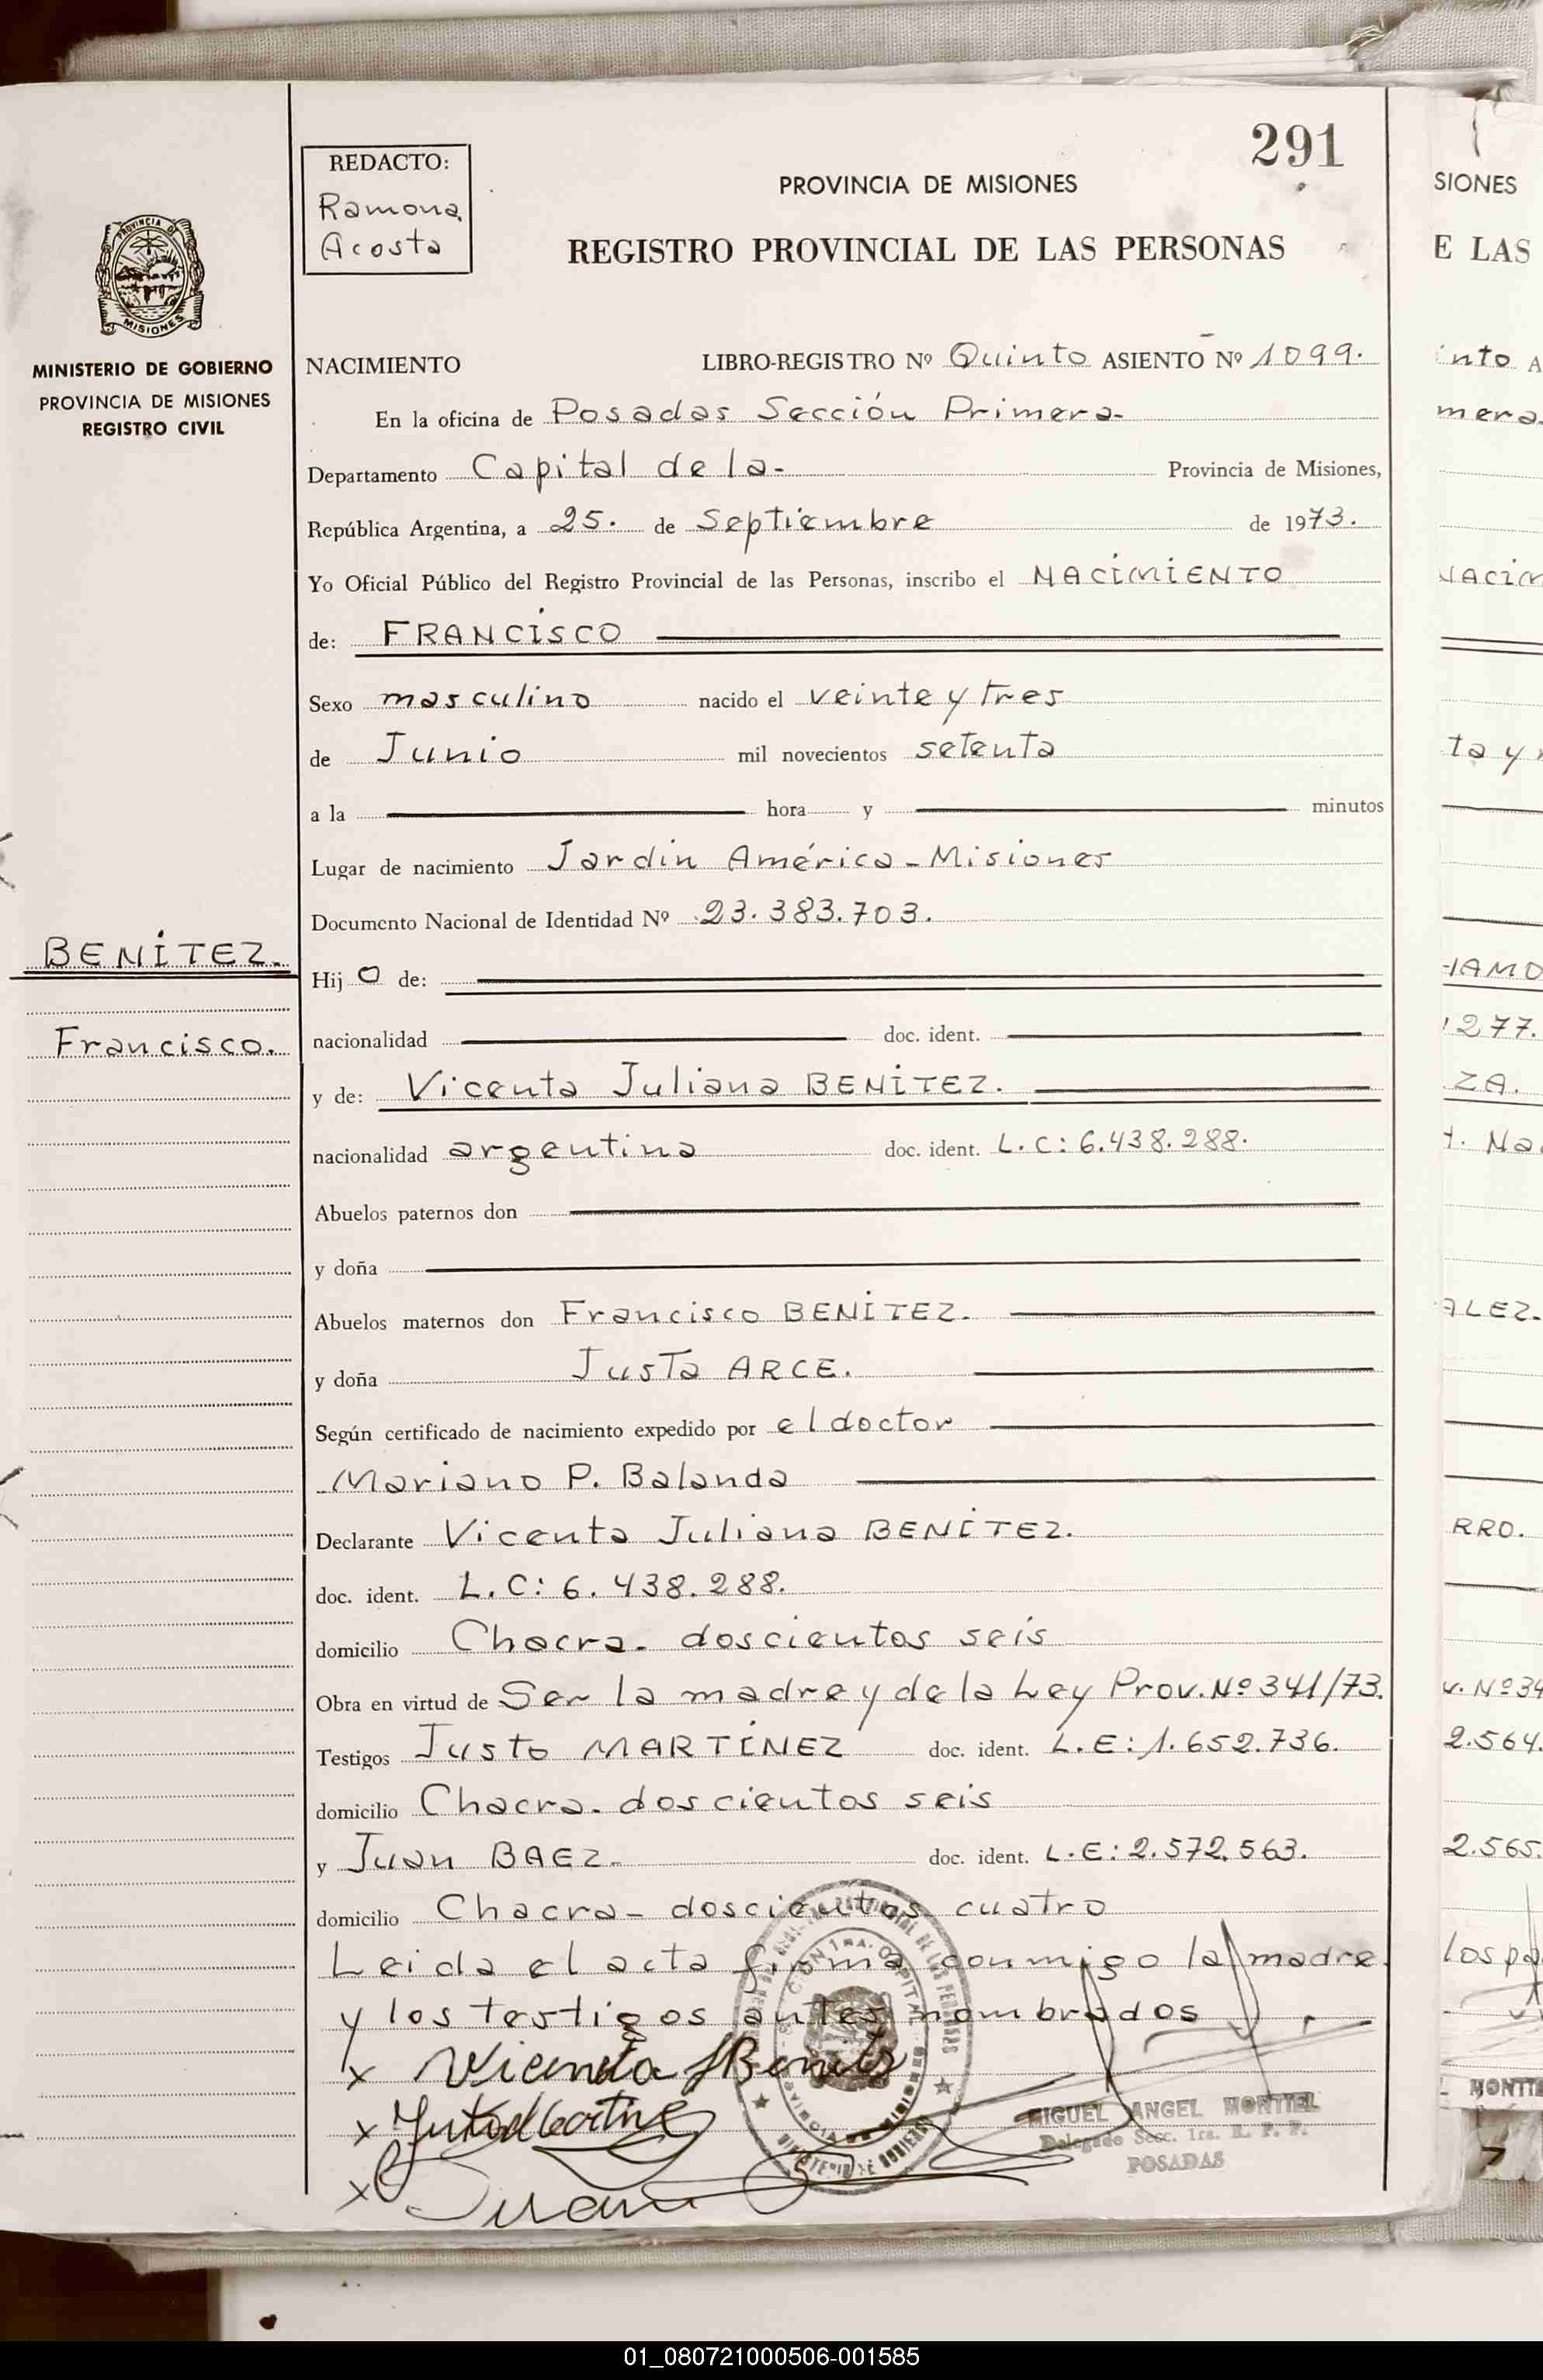 291
REDACTO:
Ramona
Acosta
PROVINCIA DE MISIONES
REGISTRO PROVINCIAL DE LAS PERSONAS
PROVINCIA DE
MISIONES
MINISTERIO DE GOBIERNO
PROVINCIA DE MISIONES
REGISTRO CIVIL
NACIMIENTO LIBRO-REGISTRO Nº Quinto ASIENTO Nº 1099.
En la oficina de Posadas Sección Primera-
Departamento Capital de la- Provincia de Misiones,
República Argentina, a 25. de Septiembre de 1973.
Yo Oficial Público del Registro Provincial de las Personas, inscribo el NACIMIENTO
de: FRANCISCO
Sexo masculino nacido el veinte y tres
de Junio mil novecientos setenta
a la hora y minutos
Lugar de nacimiento Jardín América - Misiones
Documento Nacional de Identidad Nº 23.383.703.
BENITEZ.
Hij o de:
Francisco.
nacionalidad doc. ident.
y de: Vicenta Juliana BENITEZ.
nacionalidad argentina doc. ident. L.C: 6.438.288.
Abuelos paternos don
y doña
Abuelos maternos don Francisco BENITEZ.
y doña Justa ARCE.
Según certificado de nacimiento expedido por el doctor
Mariano P. Balanda
Declarante Vicenta Juliana BENITEZ.
doc. ident. L.C: 6.438.288.
domicilio Chacra- doscientos seis
Obra en virtud de Ser la madre y de la Ley Prov. Nº 341/73.
Testigos Justo MARTINEZ doc. ident. L.E: 1.652.736.
domicilio Chacra- doscientos seis
y Juan BAEZ- doc. ident. L.E: 2.572.563.
domicilio Chacra- doscientos cuatro
Leida el acta firma conmigo la madre
y los testigos antes nombrados
x Vicenta J Benitz
x
x Juan
MIGUEL ANGEL MONTIEL
Delegado Secc. 1ra. R. P. P.
POSADAS
SIONES
E LAS
into A
mera-
ta y
1277.
ZA.
ALEZ-
RRO.
v. Nº 34
2.564.
2.565.
los pa
MONTI
01_080721000506-001585